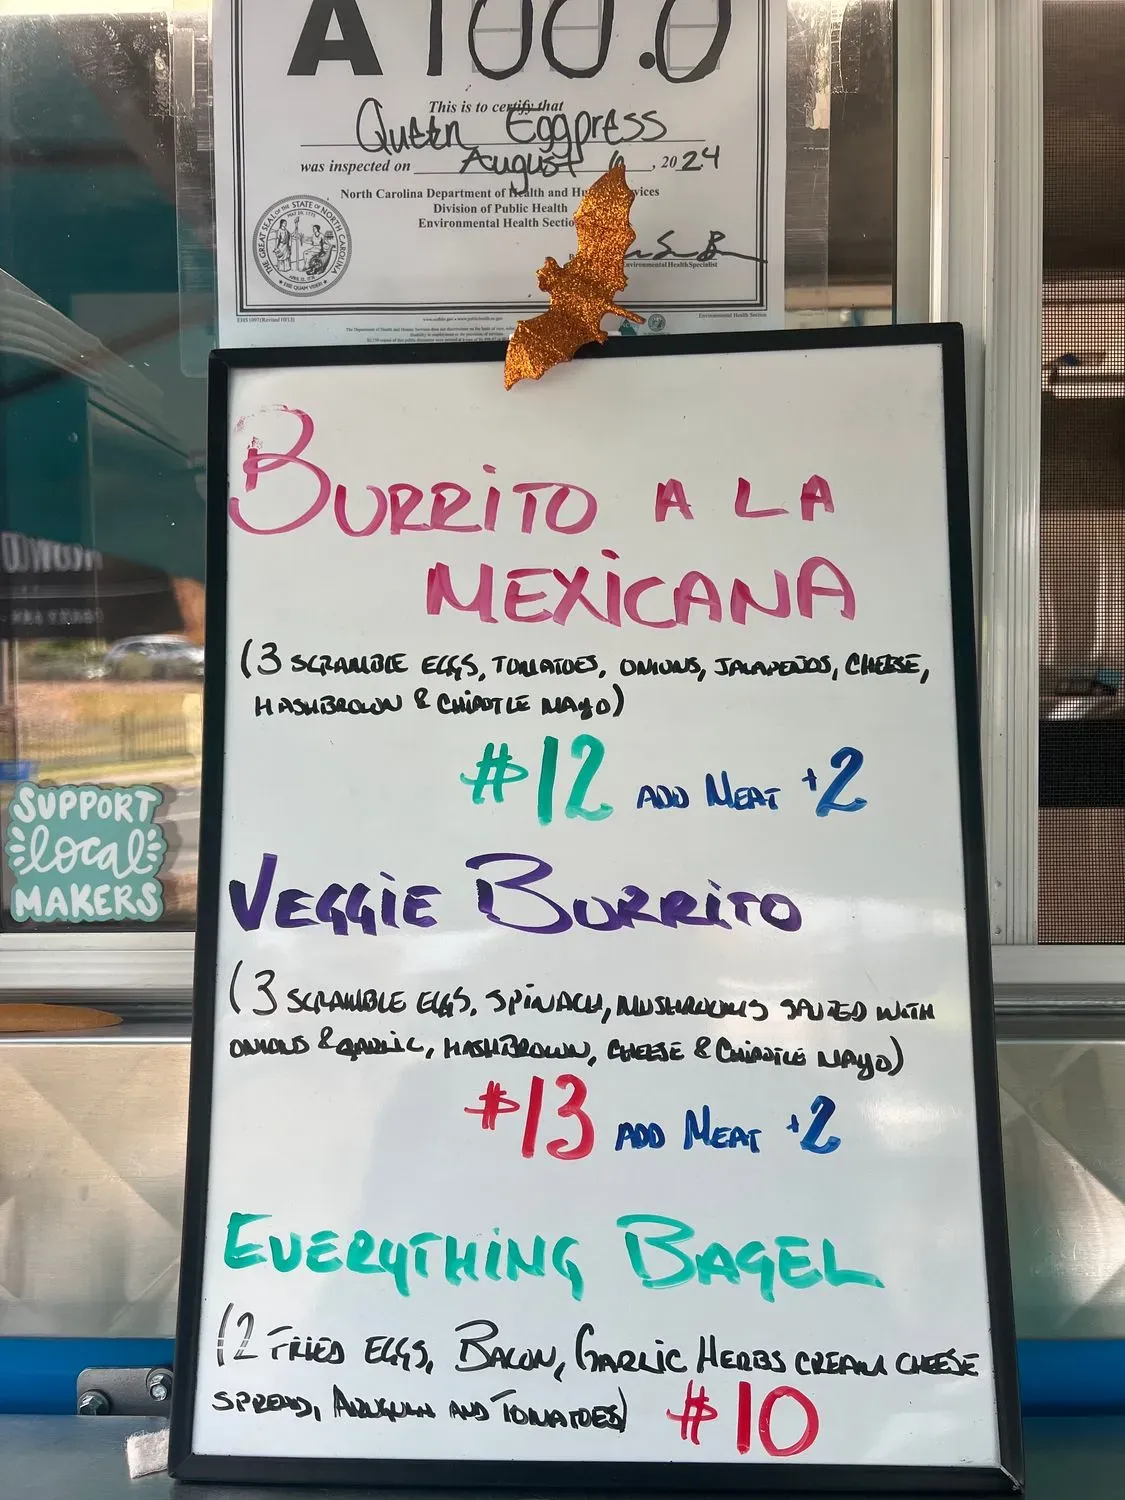 A 100.0
This is to certify that
Queen Eggpress
was inspected on August 6, 2024
North Carolina Department of Health and Human Services
Division of Public Health
Environmental Health Section
THE GREAT SEAL OF THE STATE OF NORTH CAROLINA
ESSE QUAM VIDERI
Environmental Health Specialist
EHS 1097(Revised 10/13)
Environmental Health Section
BURRITO A LA
MEXICANA
(3 SCRAMBLE EGGS, TOMATOES, ONIONS, JALAPEÑOS, CHEESE,
HASHBROWN & CHIPOTLE MAYO)
#12 ADD MEAT +2
VEGGIE BURRITO
(3 SCRAMBLE EGGS, SPINACH, MUSHROOMS SAUTED WITH
ONIONS & GARLIC, HASHBROWN, CHEESE & CHIPOTLE MAYO)
#13 ADD MEAT +2
EVERYTHING BAGEL
(2 FRIED EGGS, BACON, GARLIC HERBS CREAM CHEESE
SPREAD, ARUGULA AND TOMATOES) #10
SUPPORT
local
MAKERS